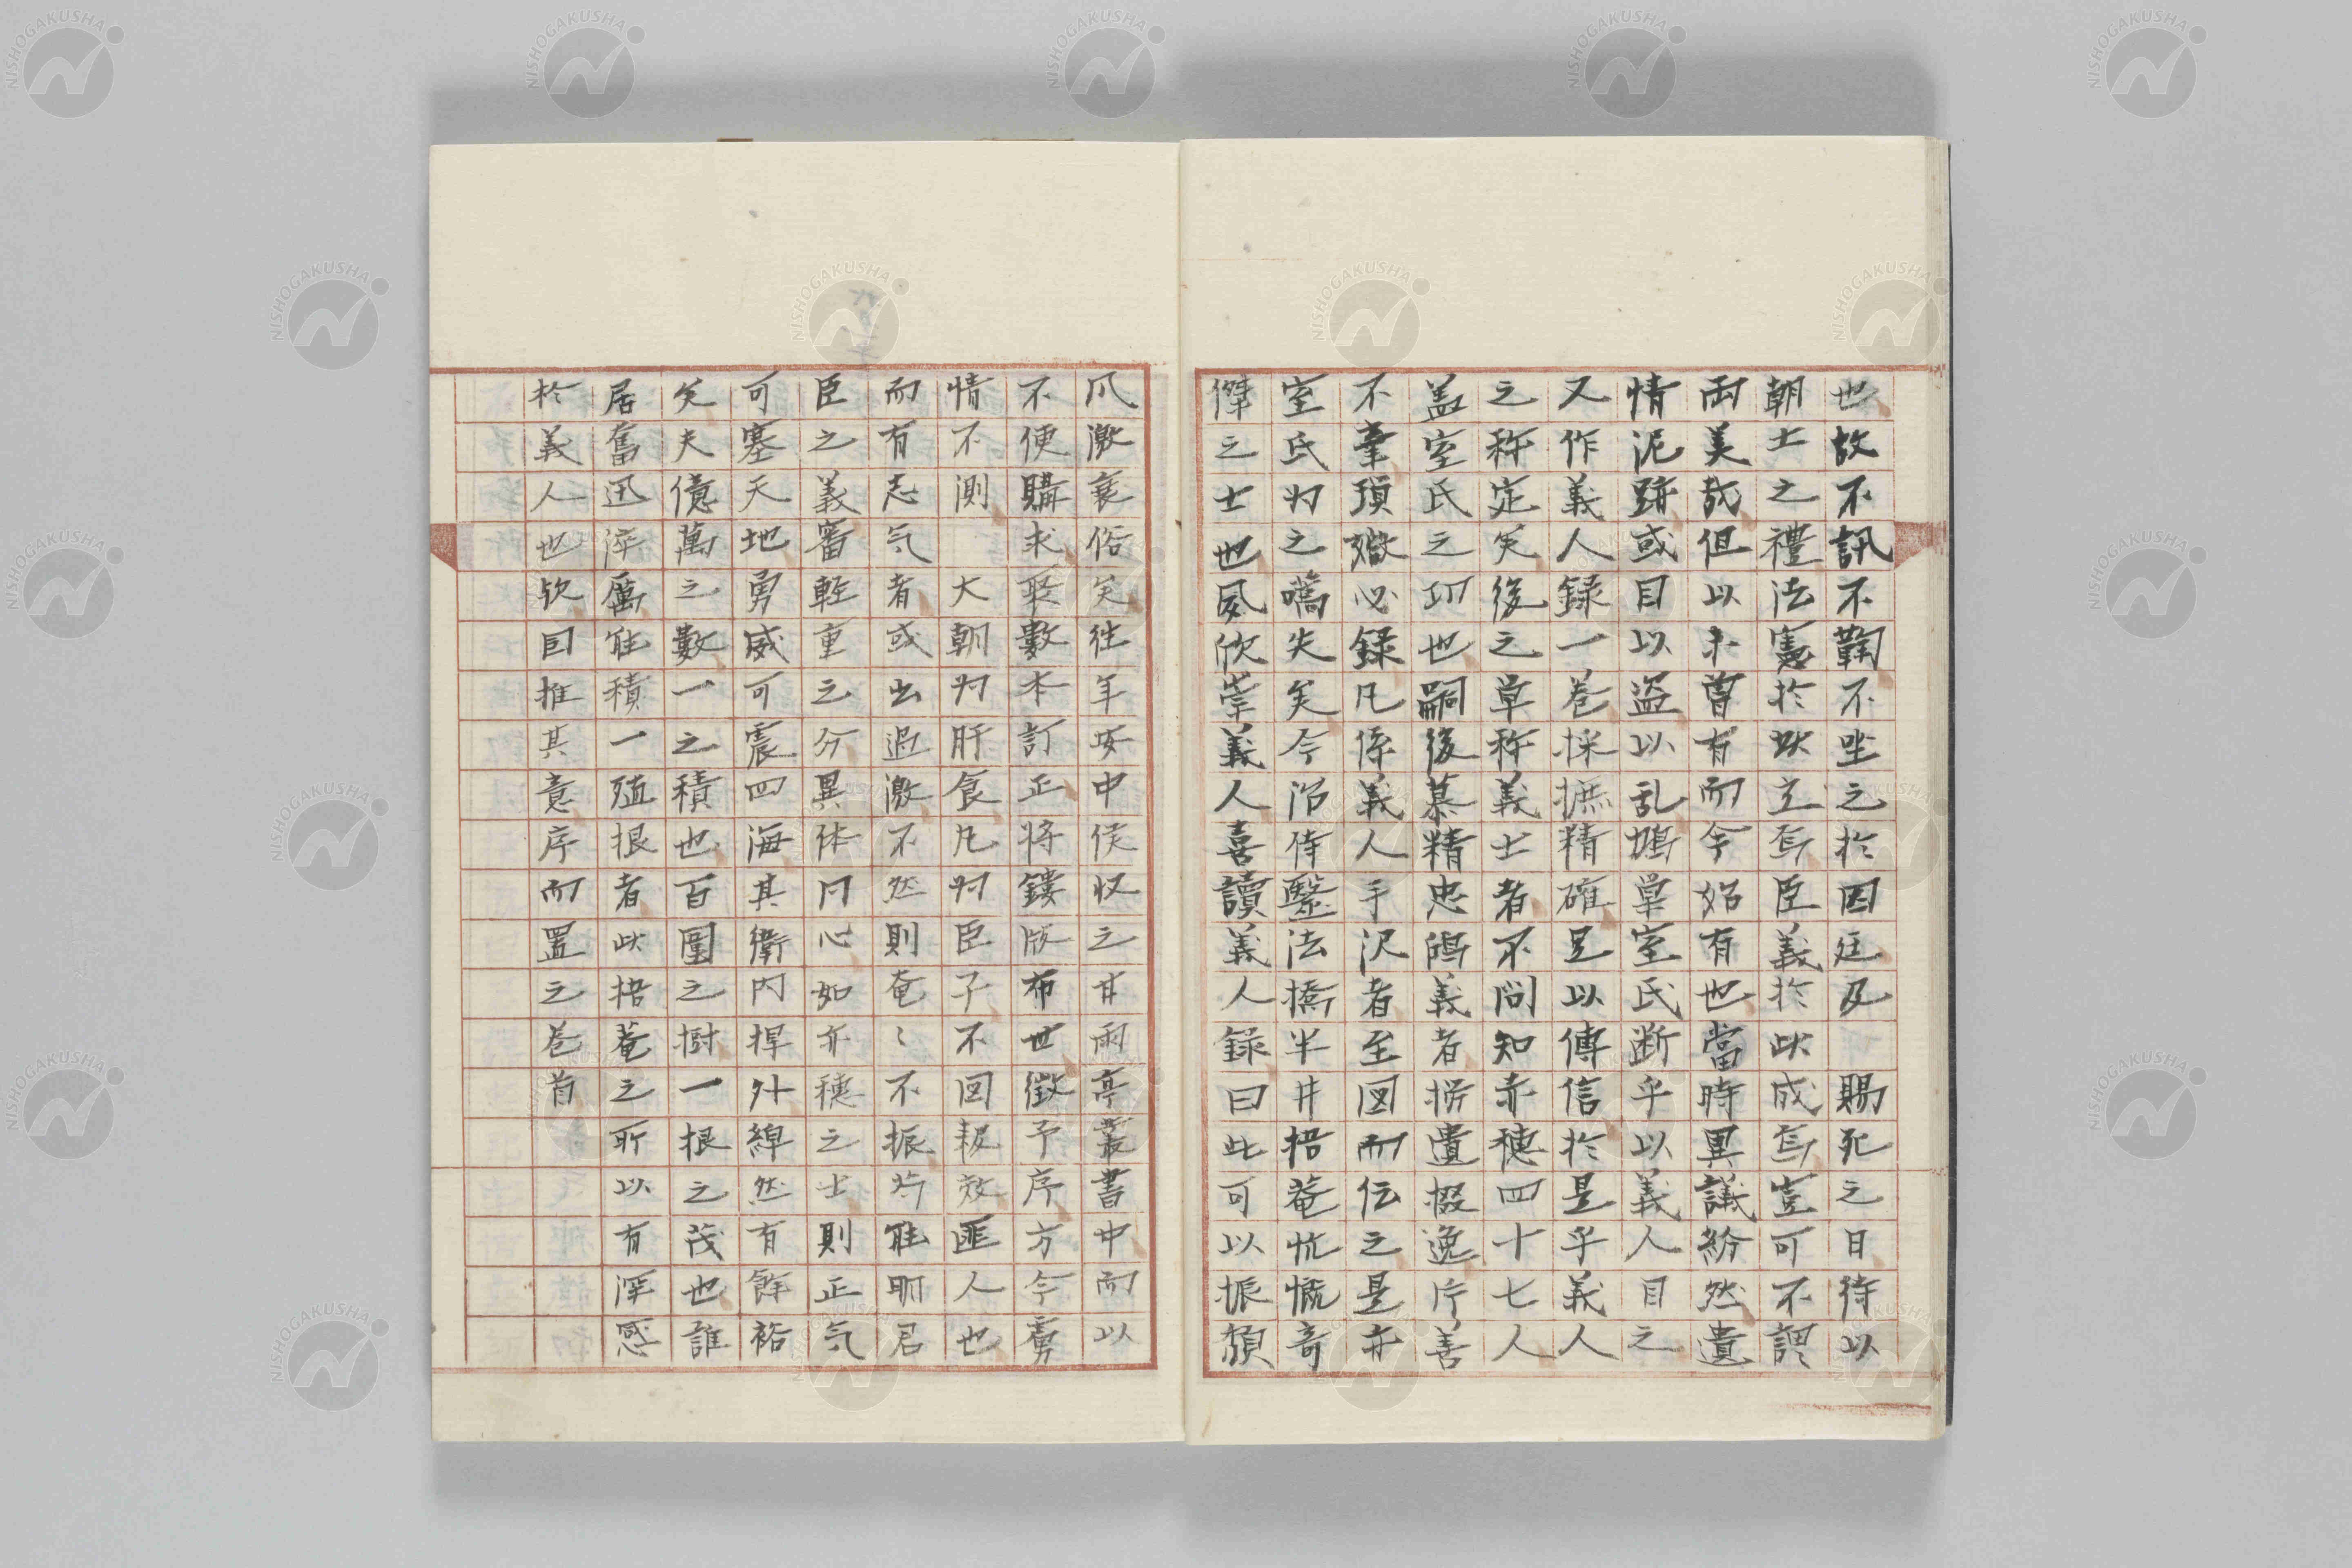 也故不訊不鞫不坐之於囚廷及　賜死之日待以
朝士之禮法憲於此立焉臣義於此成焉豈可不謂
両美哉但以未曽有而今始有也當時異議紛然遺
情泥跡或目以盗以乱嘵嘵室氏断乎以義人目之
又作義人録一巻採摭精確足以傳信於是乎義人
之称定矣後之単称義士者不問知赤穂四十七人
盖室氏之功也嗣後慕精忠鴻義者捃遺掇逸片善
不棄瑣㜸必録凡係義人手沢者至図而伝之是亦
室氏为之嚆矢矣今沼侍醫法橋半井梧菴忼慨奇
傑之士也夙欣崇義人喜讀義人録曰此可以振頽
爪激衰俗矣往年安中侯收之甘雨亭叢書中而以
不便購求聚數本訂正将鏤版布世徴予序方今虜
情不測　大朝为肝食凡为臣子不図報效匪人也
而有志気者或出過激不然則奄〻不振片能明君
臣之義審軽重之分異体同心如亦穂之士則正気
可塞天地勇威可震四海其衛内捍外綽然有餘裕
矣夫億萬之數一之積也百圍之樹一根之茂也誰
居奮迅淬厲能積一殖根者此梧菴之所以有深感
於義人也欽囙推其意序而置之巻首